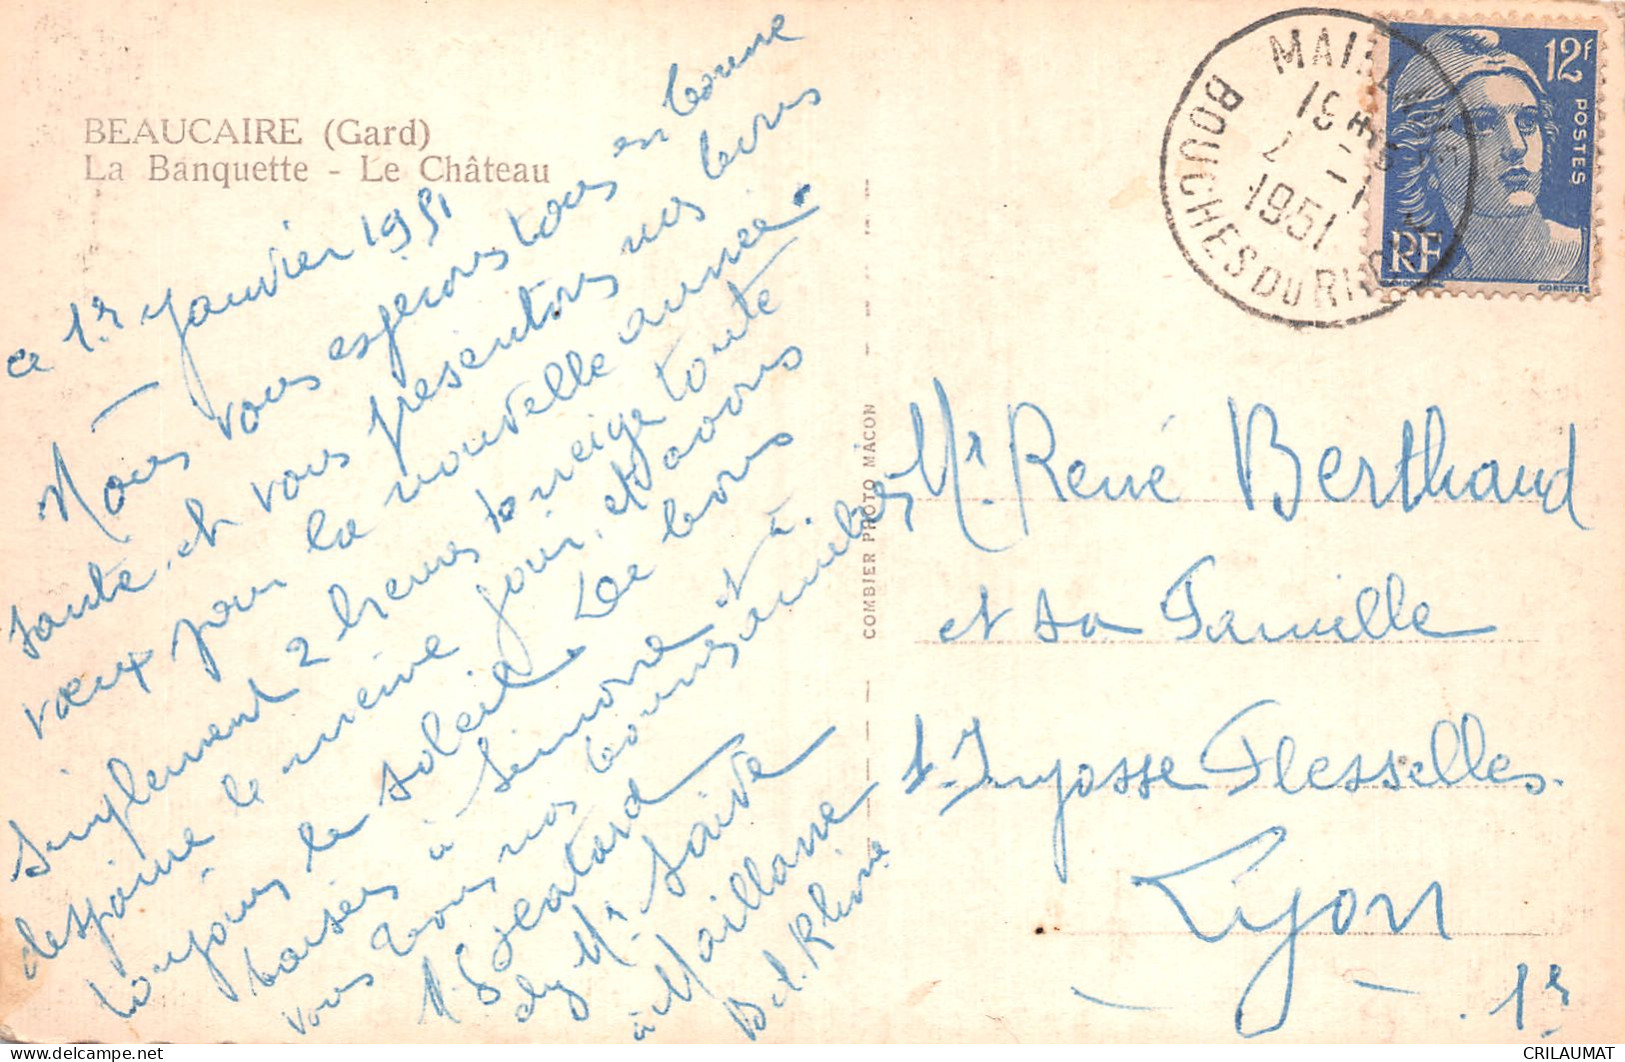 BEAUCAIRE (Gard)
La Banquette - Le Château
ce 1er Janvier 1951
Nous vous esperons tous en bonne
santé, et vous presentons nos bons
voeux pour la nouvelle année.
Simplement 2 heures de neige toute
le même jour, et avons
toujours le soleil. De bons
baisers à Simone et à
vous tous nos bonnes amitiés
chez Mr
à Maillane
B. d. Rhône
COMBIER PHOTO MACON
MAILLANE
19
2 - 1
1951
BOUCHES DU RHONE
12F
POSTES
RF
GANDON
CORTOT. SC
Mr. René Berthaud
et sa Famille
1. Impasse Flesselles.
Lyon
1er
CRILAUMAT